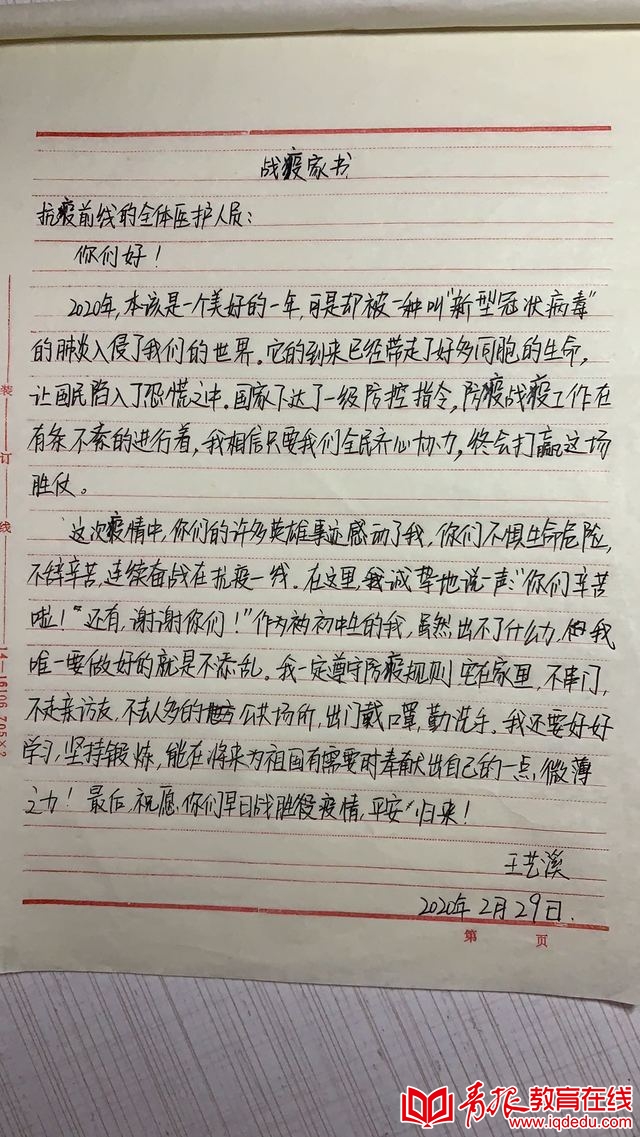 战疫家书
抗疫前线的全体医护人员：
你们好！
2020年，本该是一个美好的一年，可是却被一种叫“新型冠状病毒”
的肺炎入侵了我们的世界。它的到来已经带走了好多同胞的生命，
让国民陷入了恐慌之中。国家下达了一级防控指令，防疫战疫工作在
有条不紊的进行着，我相信只要我们全民齐心协力，终会打赢这场
胜仗。
这次疫情中，你们的许多英雄事迹感动了我，你们不惧生命危险，
不辞辛苦，连续奋战在抗疫一线。在这里，我诚挚地说一声：“你们辛苦
啦！”“还有，谢谢你们！”作为初中生的我，虽然出不了什么力，但我
唯一要做好的就是不添乱。我一定尊守防疫规则，宅在家里，不串门，
不走亲访友，不去人多的公共场所，出门戴口罩，勤洗手。我还要好好
学习，坚持锻炼，能在将来为祖国有需要时奉献出自己的一点微薄
之力！最后，祝愿你们早日战胜疫情，平安归来！
王艺溪
2020年2月29日.
第 页
装
订
线
青报教育在线
www.iqdedu.com